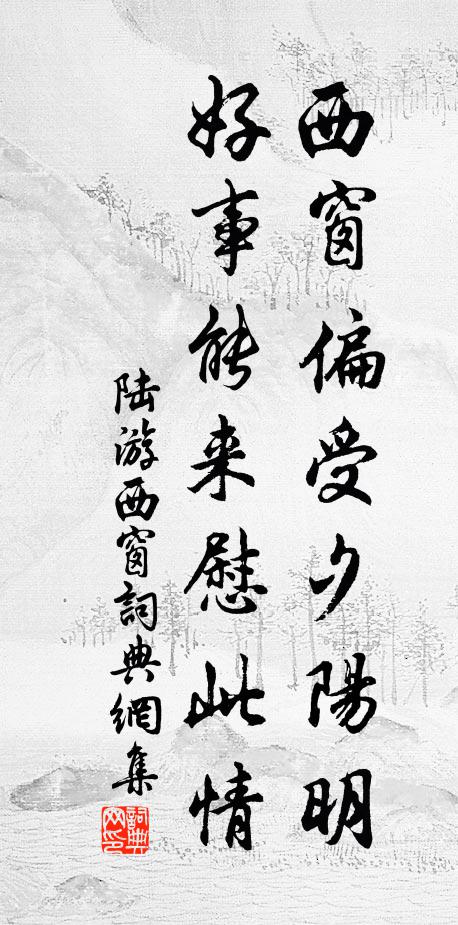 西窗偏受夕陽明
好事能来慰此情
陆游西窗詞典網集
詞典網印